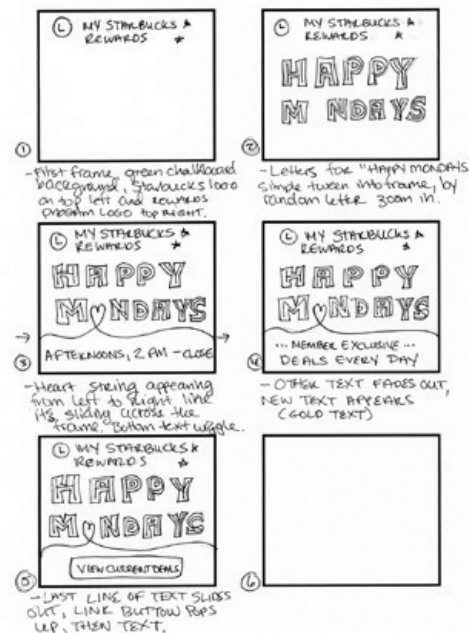 L MY STARBUCKS
REWARDS
1
- First frame, green chalkboard
background, Starbucks logo
on top left and rewards
program logo top right.
L MY STARBUCKS
REWARDS
HAPPY
M NDAYS
2
- Letters for "HAPPY MONDAYS
simple tween into frame, by
random letter zoom in.
L MY STARBUCKS
REWARDS
HAPPY
M NDAYS
AFTERNOONS, 2 PM - CLOSE
3
- Heart string appearing
from left to right like
its sliding across the
frame. Bottom text wiggle.
L MY STARBUCKS
REWARDS
HAPPY
M NDAYS
... MEMBER EXCLUSIVE ...
DEALS EVERY DAY
4
- OTHER TEXT FADES OUT,
NEW TEXT APPEARS
(GOLD TEXT)
L MY STARBUCKS
REWARDS
HAPPY
M NDAYS
VIEW CURRENT DEALS
5
- LAST LINE OF TEXT SLIDES
OUT, LINK BUTTON POPS
UP, THEN TEXT.
6